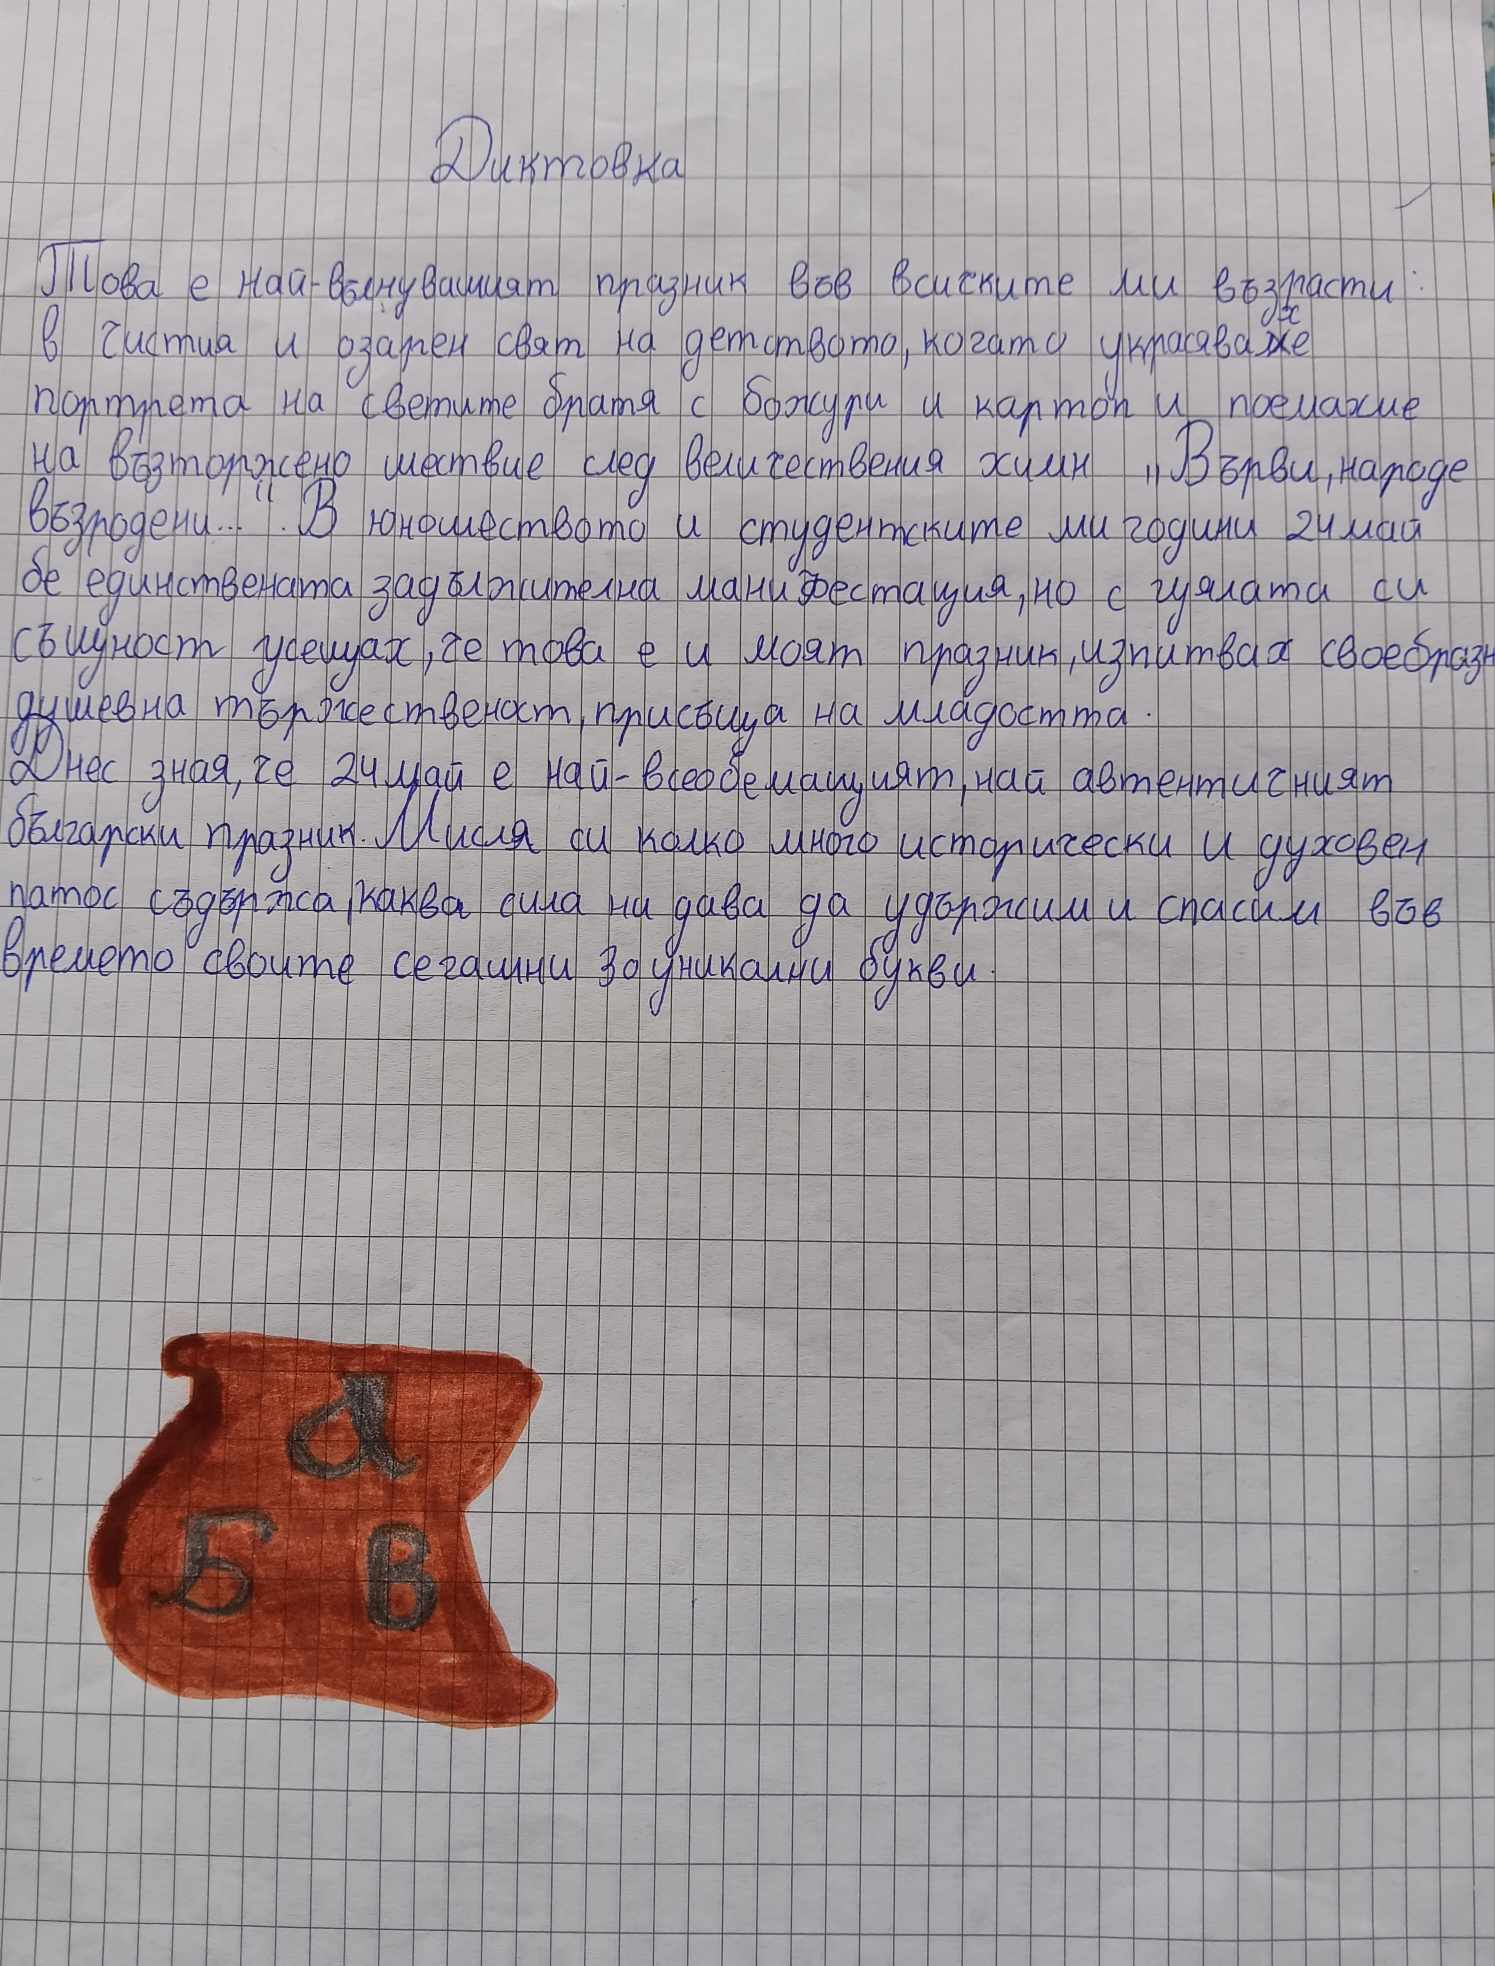 Диктовка
Това е най-вълнуващият празник във всичките ми възрасти:
в чистиа и озарен свят на детството, когато украсявахе
портрета на светите братя с божури и картон и поемахме
на възторжено шествие след величествения химн „Върви, народе
възродени...“. В юношеството и студентските ми години 24 май
бе единствената задължителна манифестация, но с цялата си
същност усещах, че това е и моят празник, изпитвах своеобразн
душевна тържественост, присъща на младостта.
Днес зная, че 24 май е най-всеобемащият, най автентичният
български празник. Мисля си колко много исторически и духовен
патос съдържа, каква сила ни дава да удържим и спасим във
времето своите сегашни зауникални букви.
А
Б В